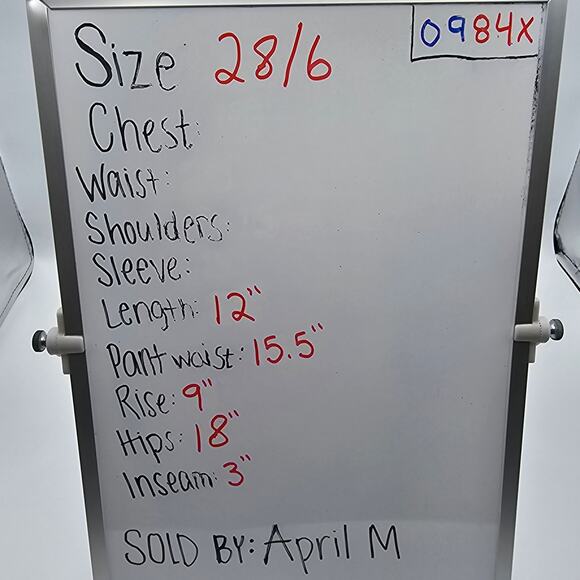 Size 28/6
0984X
Chest:
Waist:
Shoulders:
Sleeve:
Length: 12"
Pant waist: 15.5"
Rise: 9"
Hips: 18"
Inseam: 3"
SOLD BY: April M